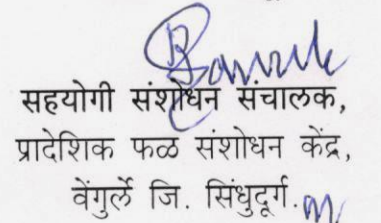 सहयोगी संशोधन संचालक,
प्रादेशिक फळ संशोधन केंद्र,
वेंगुर्ले जि. सिंधुदूर्ग.